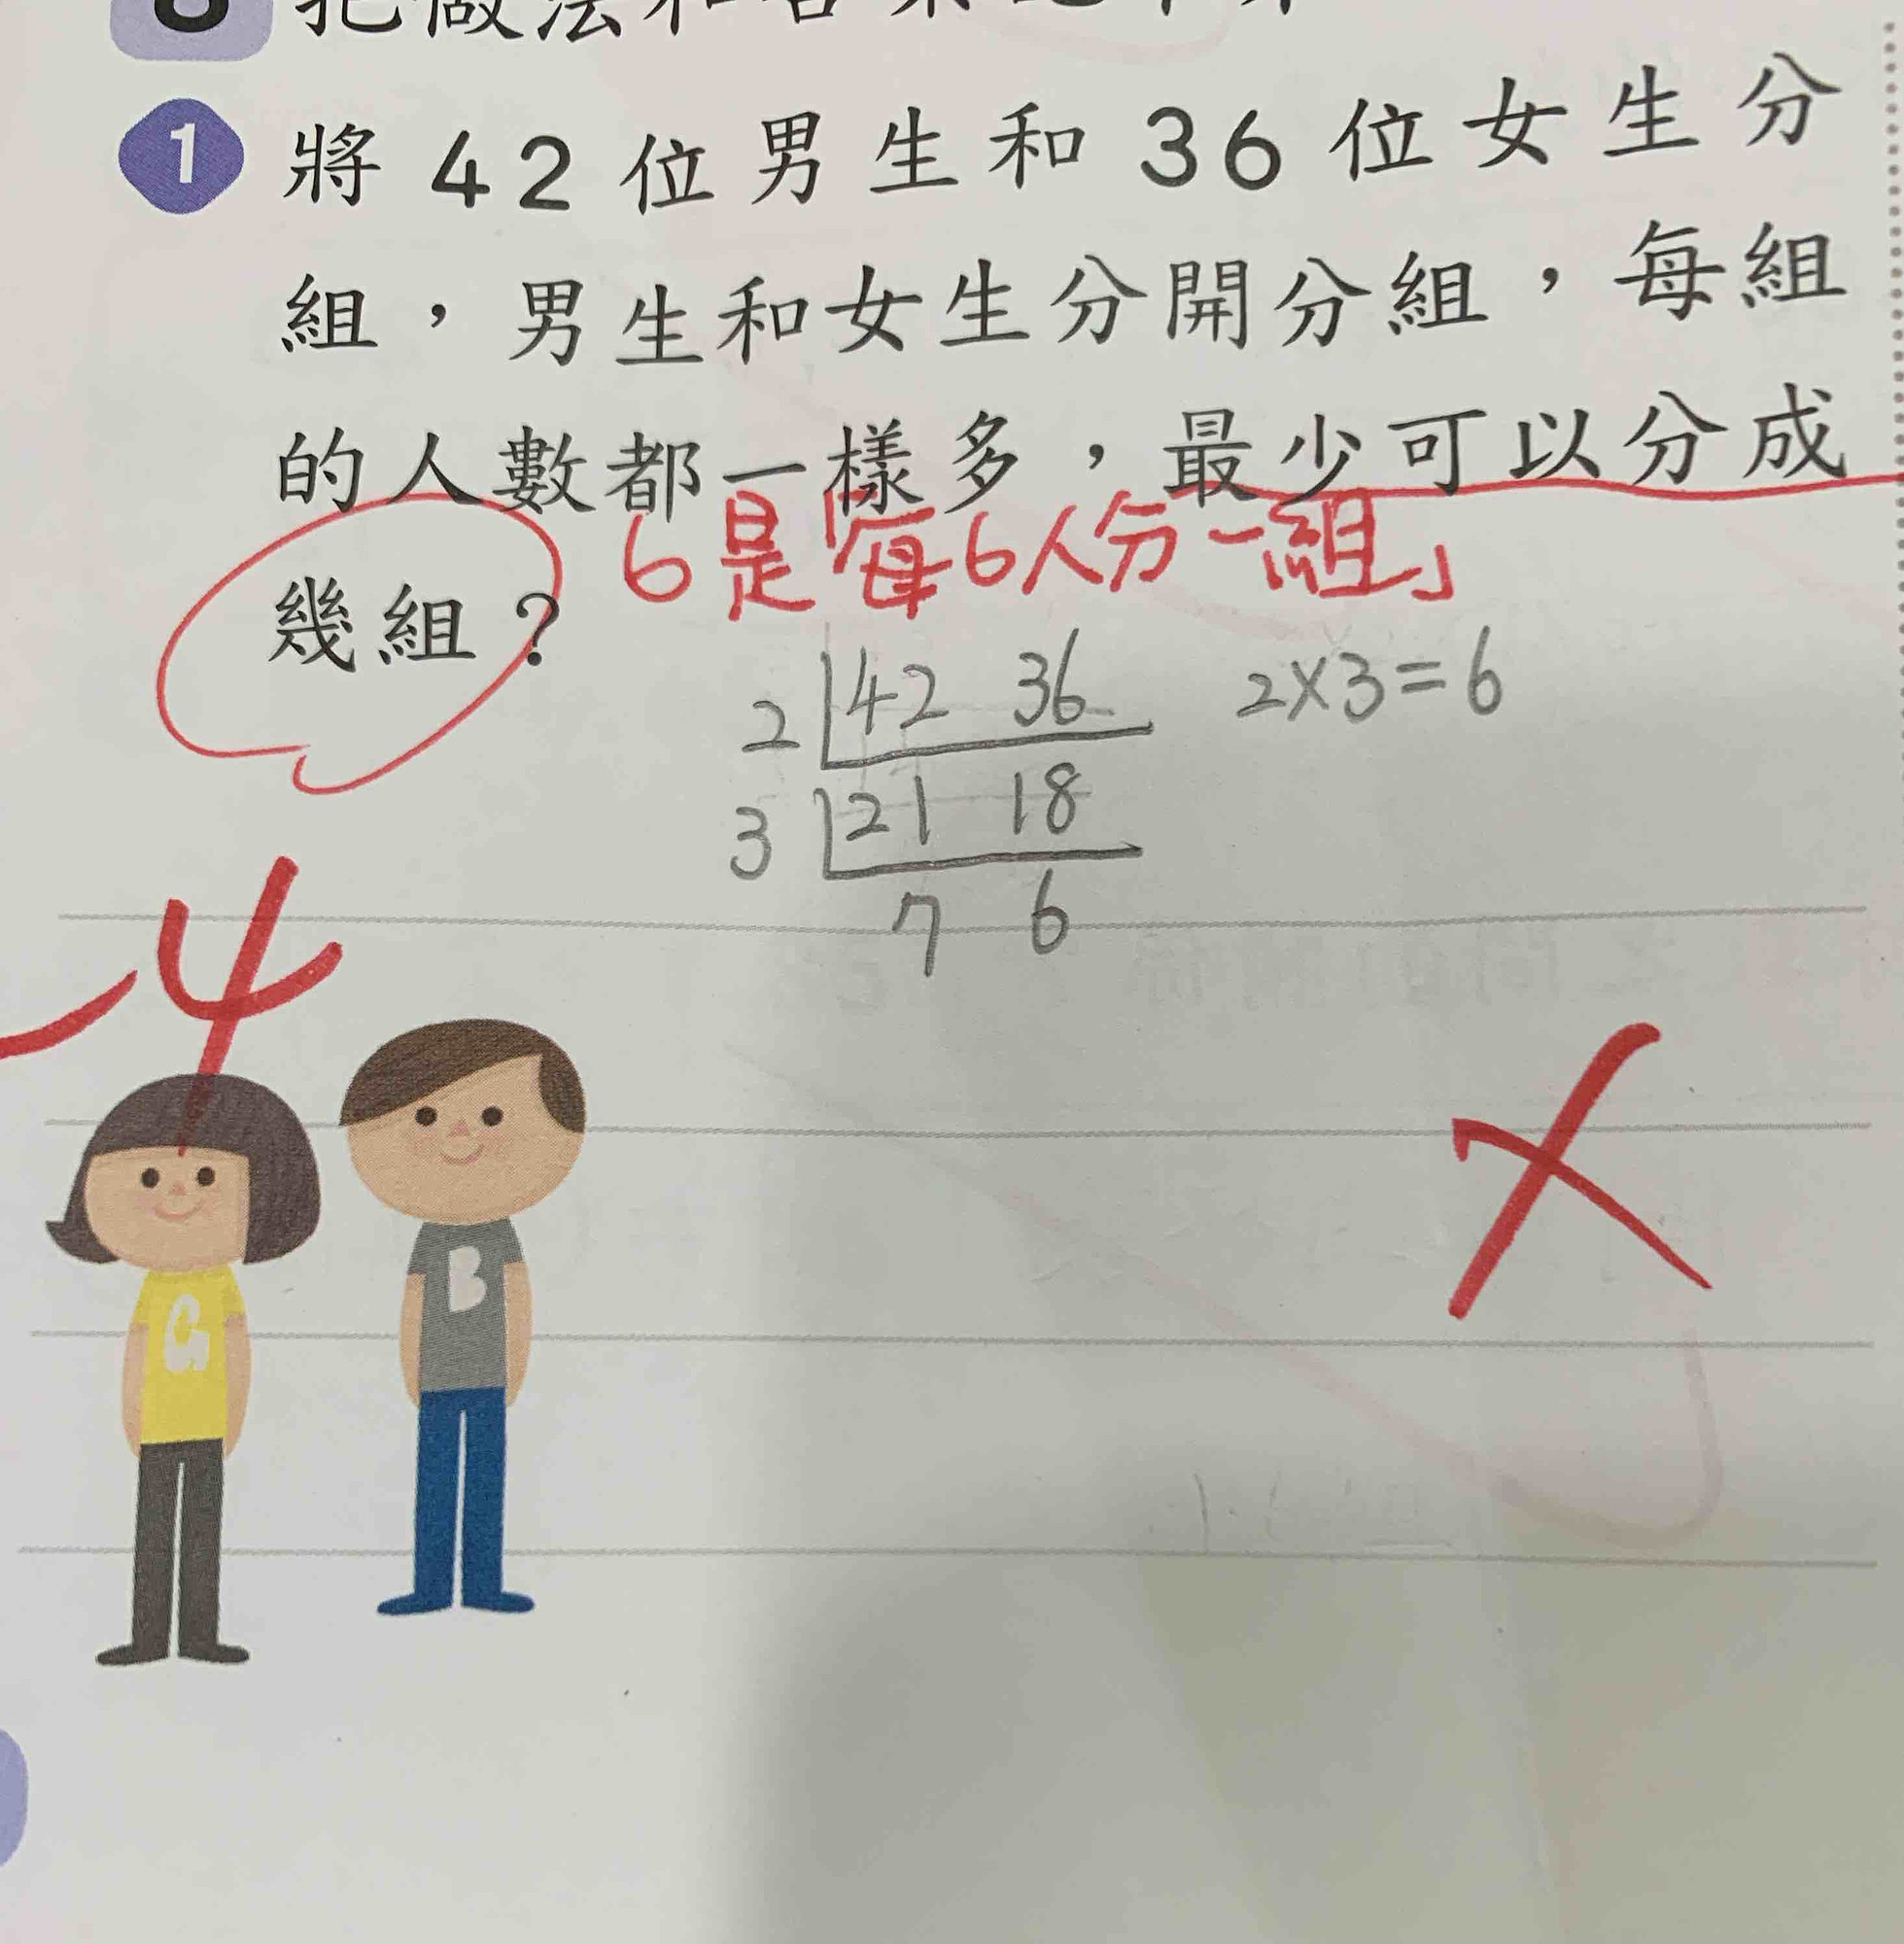 把做法和答案
1 將42位男生和36位女生分
組，男生和女生分開分組，每組
的人數都一樣多，最少可以分成
幾組？
6是「每6人分一組」
2 42 36 2×3=6
3 21 18
7 6
-4
G
B